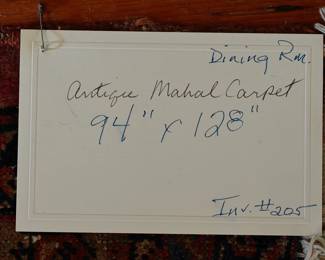 Dining Rm.
Antique Mahal Carpet
94" x 128"
Inv. #205